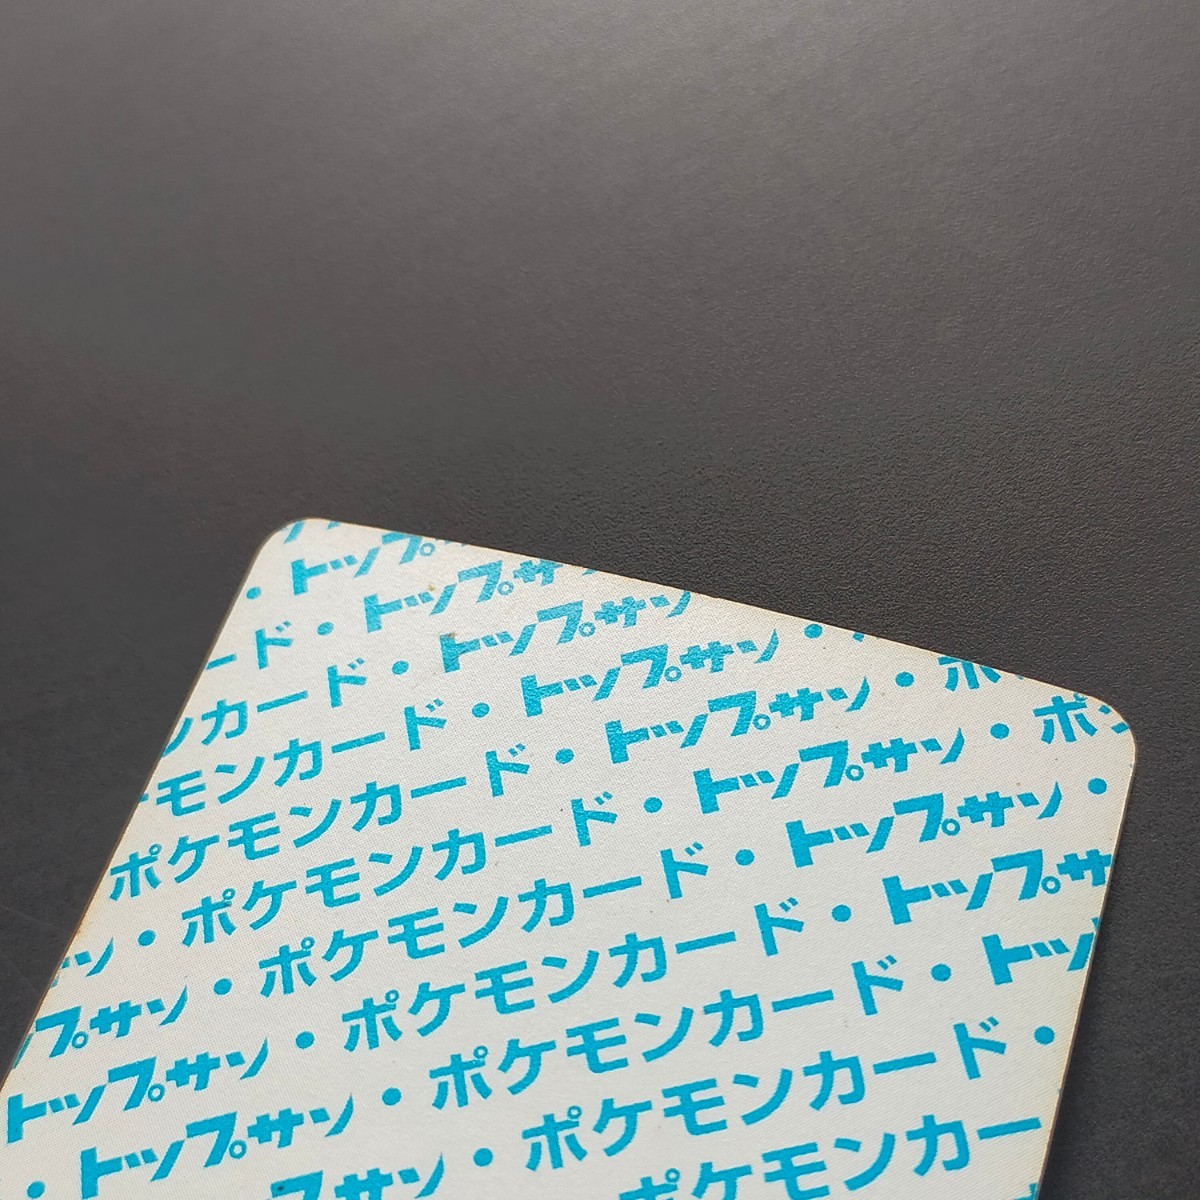 ・トップ
ード・トップサ
ンカード・トップサン
モンカード・トップサン・
ポケモンカード・トップサン・ポ
・ポケモンカード・トップサン・ポ
サン・ポケモンカード・トップサン・
プサン・ポケモンカード・トップサ
トップサン・ポケモンカード・トッ
・トップサン・ポケモンカード・
サン・ポケモンカー
ポケモンカー